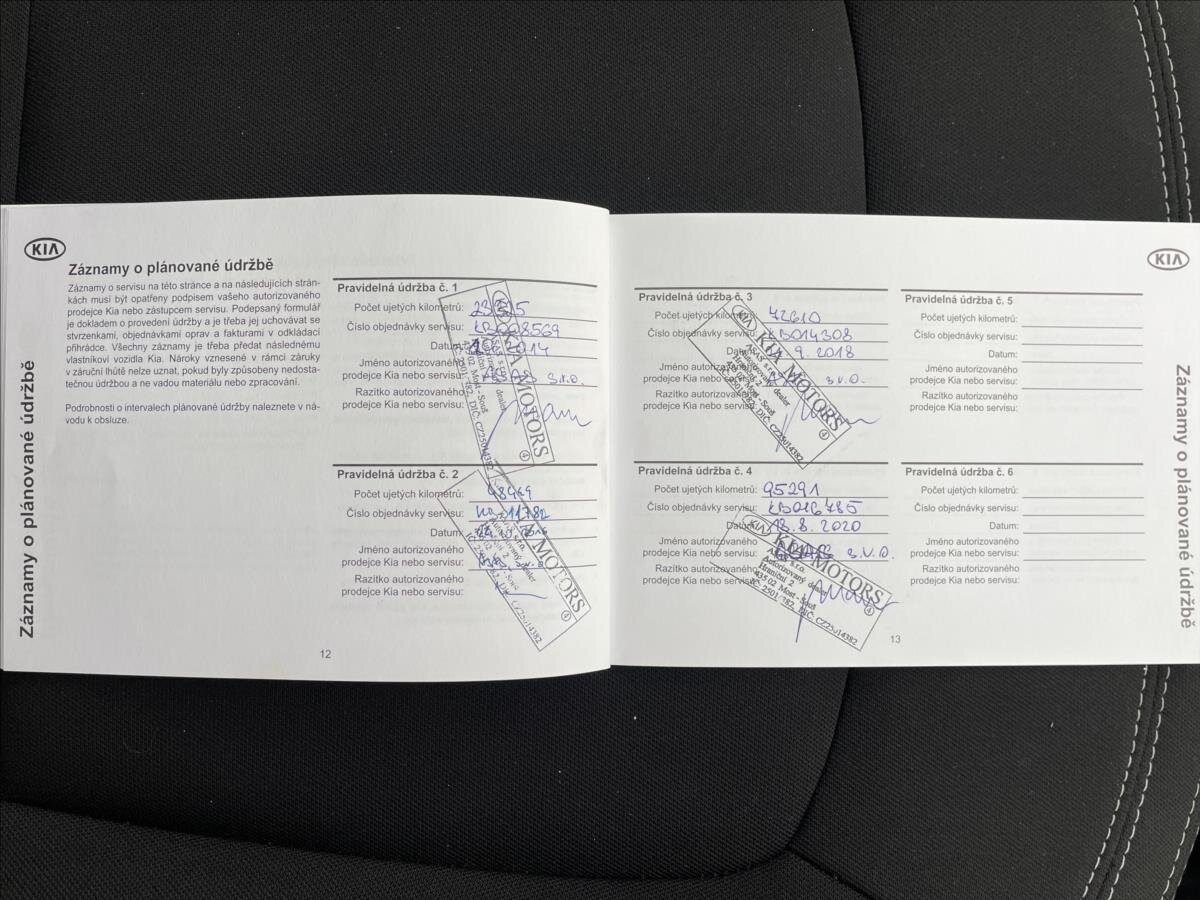 KIA
Záznamy o plánované údržbě
Záznamy o servisu na této stránce a na následujících strán-
kách musí být opatřeny podpisem vašeho autorizovaného
prodejce Kia nebo zástupcem servisu. Podepsaný formulář
je dokladem o provedení údržby a je třeba jej uchovávat se
stvrzenkami, objednávkami oprav a fakturami v odkládací
přihrádce. Všechny záznamy je třeba předat následnému
vlastníkovi vozidla Kia. Nároky vznesené v rámci záruky
v záruční lhůtě nelze uznat, pokud byly způsobeny nedosta-
tečnou údržbou a ne vadou materiálu nebo zpracování.
Podrobnosti o intervalech plánované údržby naleznete v ná-
vodu k obsluze.
Záznamy o plánované údržbě
Pravidelná údržba č. 1
Počet ujetých kilometrů:
Číslo objednávky servisu: KB008569
Datum: 2014
Jméno autorizovaného
prodejce Kia nebo servisu: s.r.o.
Razítko autorizovaného
prodejce Kia nebo servisu:
KIA MOTORS
DIČ: CZ25014382
4
Pravidelná údržba č. 2
Počet ujetých kilometrů: 48969
Číslo objednávky servisu: 11782
Datum:
Jméno autorizovaného
prodejce Kia nebo servisu:
Razítko autorizovaného
prodejce Kia nebo servisu:
MOTORS
CZ25014382
4
12
Pravidelná údržba č. 3
Počet ujetých kilometrů: 72610
Číslo objednávky servisu: KB014308
Datum: 4. 9. 2018
Jméno autorizovaného
prodejce Kia nebo servisu: s.r.o.
Razítko autorizovaného
prodejce Kia nebo servisu:
KIA MOTORS
Autorizovaný dealer
Hraniční 2
435 02 Most - Souš
DIČ: CZ25014382
4
Pravidelná údržba č. 4
Počet ujetých kilometrů: 95291
Číslo objednávky servisu: KB016785
Datum: 13. 8. 2020
Jméno autorizovaného
prodejce Kia nebo servisu: s.r.o.
Razítko autorizovaného
prodejce Kia nebo servisu:
KIA MOTORS
Autorizovaný dealer
Hraniční 2
435 02 Most - Souš
DIČ: CZ25014382
4
13
KIA
Pravidelná údržba č. 5
Počet ujetých kilometrů:
Číslo objednávky servisu:
Datum:
Jméno autorizovaného
prodejce Kia nebo servisu:
Razítko autorizovaného
prodejce Kia nebo servisu:
Pravidelná údržba č. 6
Počet ujetých kilometrů:
Číslo objednávky servisu:
Datum:
Jméno autorizovaného
prodejce Kia nebo servisu:
Razítko autorizovaného
prodejce Kia nebo servisu:
Záznamy o plánované údržbě